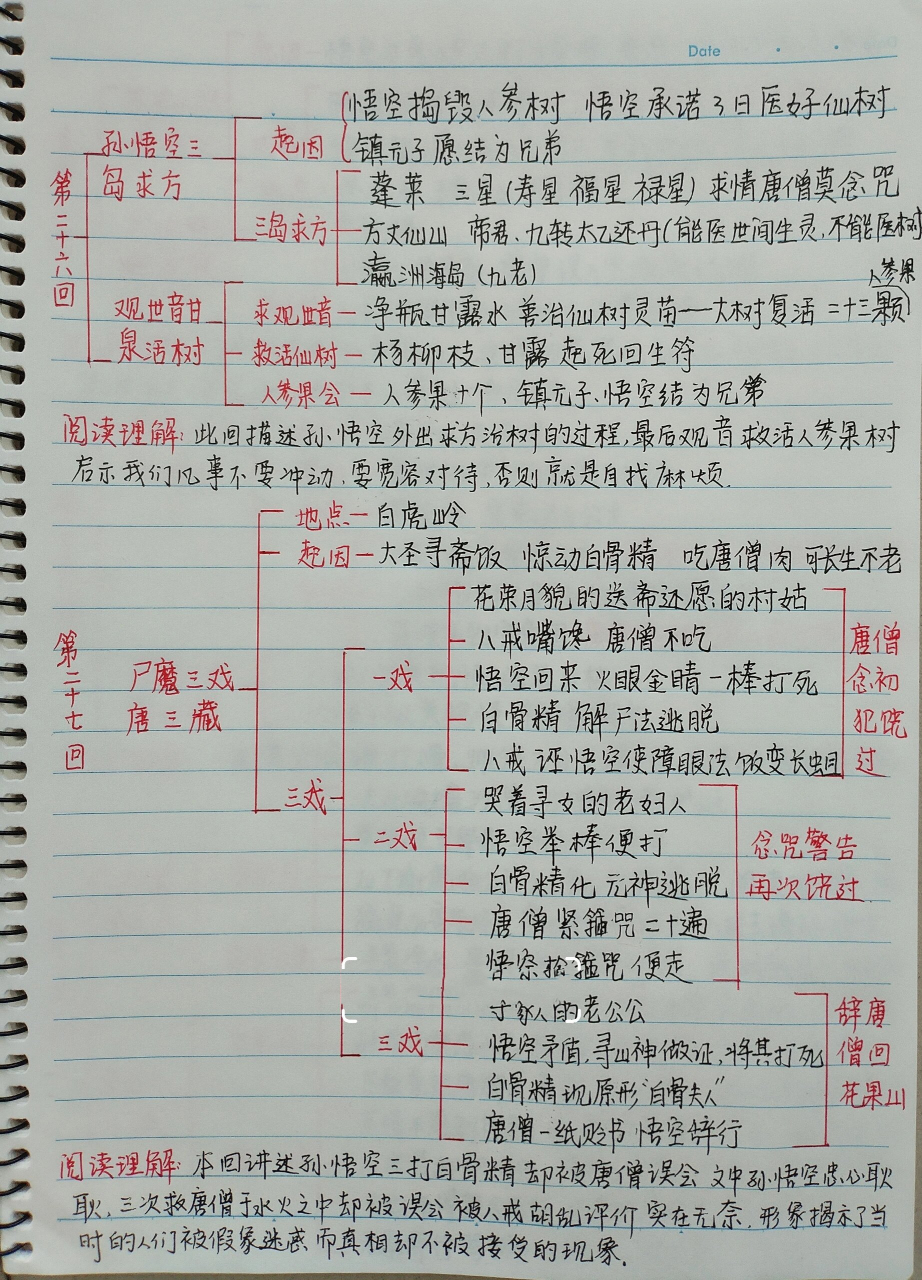 Date
悟空捣毁人参树 悟空承诺3日医好仙树
孙悟空三
岛求方
起因
镇元子愿结为兄弟
第二十六回
蓬莱 三星(寿星 福星 禄星) 求情唐僧莫念咒
三岛求方
方丈仙山 帝君、九转太乙还丹(能医世间生灵,不能医树
瀛洲海岛 (九老)
人参果
观世音甘
泉活树
求观世音—净瓶甘露水 善治仙树灵苗—大树复活 二十三颗
救活仙树—杨柳枝、甘露 起死回生符
人参果会—人参果十个、镇元子、悟空结为兄弟
阅读理解:此回描述孙悟空外出求方治树的过程,最后观音救活人参果树
启示我们凡事不要冲动,要宽容对待,否则就是自找麻烦.
第二十七回
尸魔三戏
唐三藏
地点—白虎岭
起因—大圣寻斋饭 惊动白骨精 吃唐僧肉 可长生不老
三戏
一戏
花荣月貌的送斋还愿的村姑
八戒嘴馋 唐僧不吃
悟空回来 火眼金睛一棒打死
白骨精 解尸法逃脱
八戒 诬悟空使障眼法饭变长蛆
唐僧
念初
犯饶
过
二戏
哭着寻女的老妇人
悟空举棒便打
白骨精化 元神逃脱
唐僧紧箍咒二十遍
箍咒 便走
念咒警告
再次饶过
三戏
寻家人的老公公
悟空矛盾,寻山神做证,将其打死
白骨精现原形“白骨夫人”
唐僧一纸贬书 悟空辞行
辞唐
僧回
花果山
阅读理解:本回讲述孙悟空三打白骨精却被唐僧误会 文中孙悟空忠心耿
耿,三次救唐僧于水火之中却被误会 被八戒胡乱评价 实在无奈,形象揭示了当
时的人们被假象迷惑而真相却不被接受的现象.